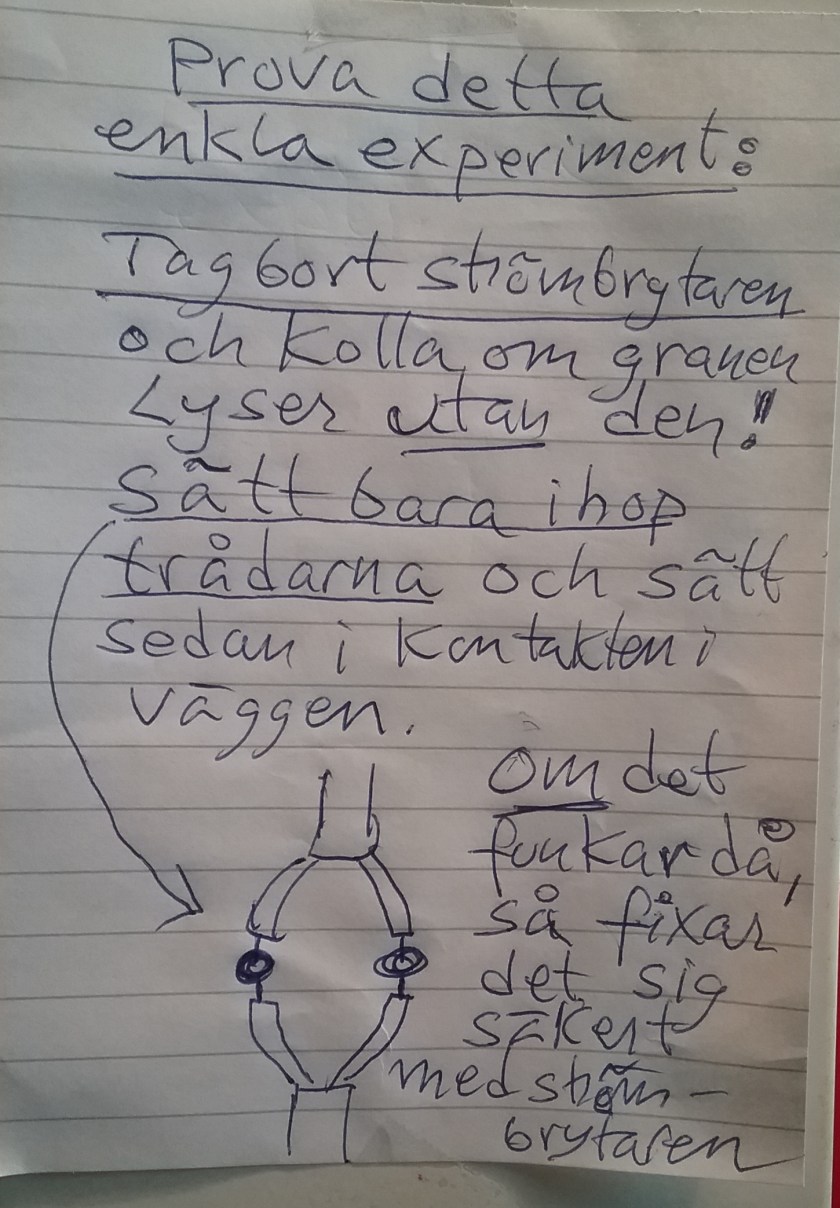 Prova detta
enkla experiment:
Tag bort strömbrytaren
och kolla om granen
Lyser utan den!
Sätt bara ihop
trådarna och sätt
sedan i kontakten i
väggen.
om det
funkar då,
så fixar
det sig
säkert
med ström-
brytaren